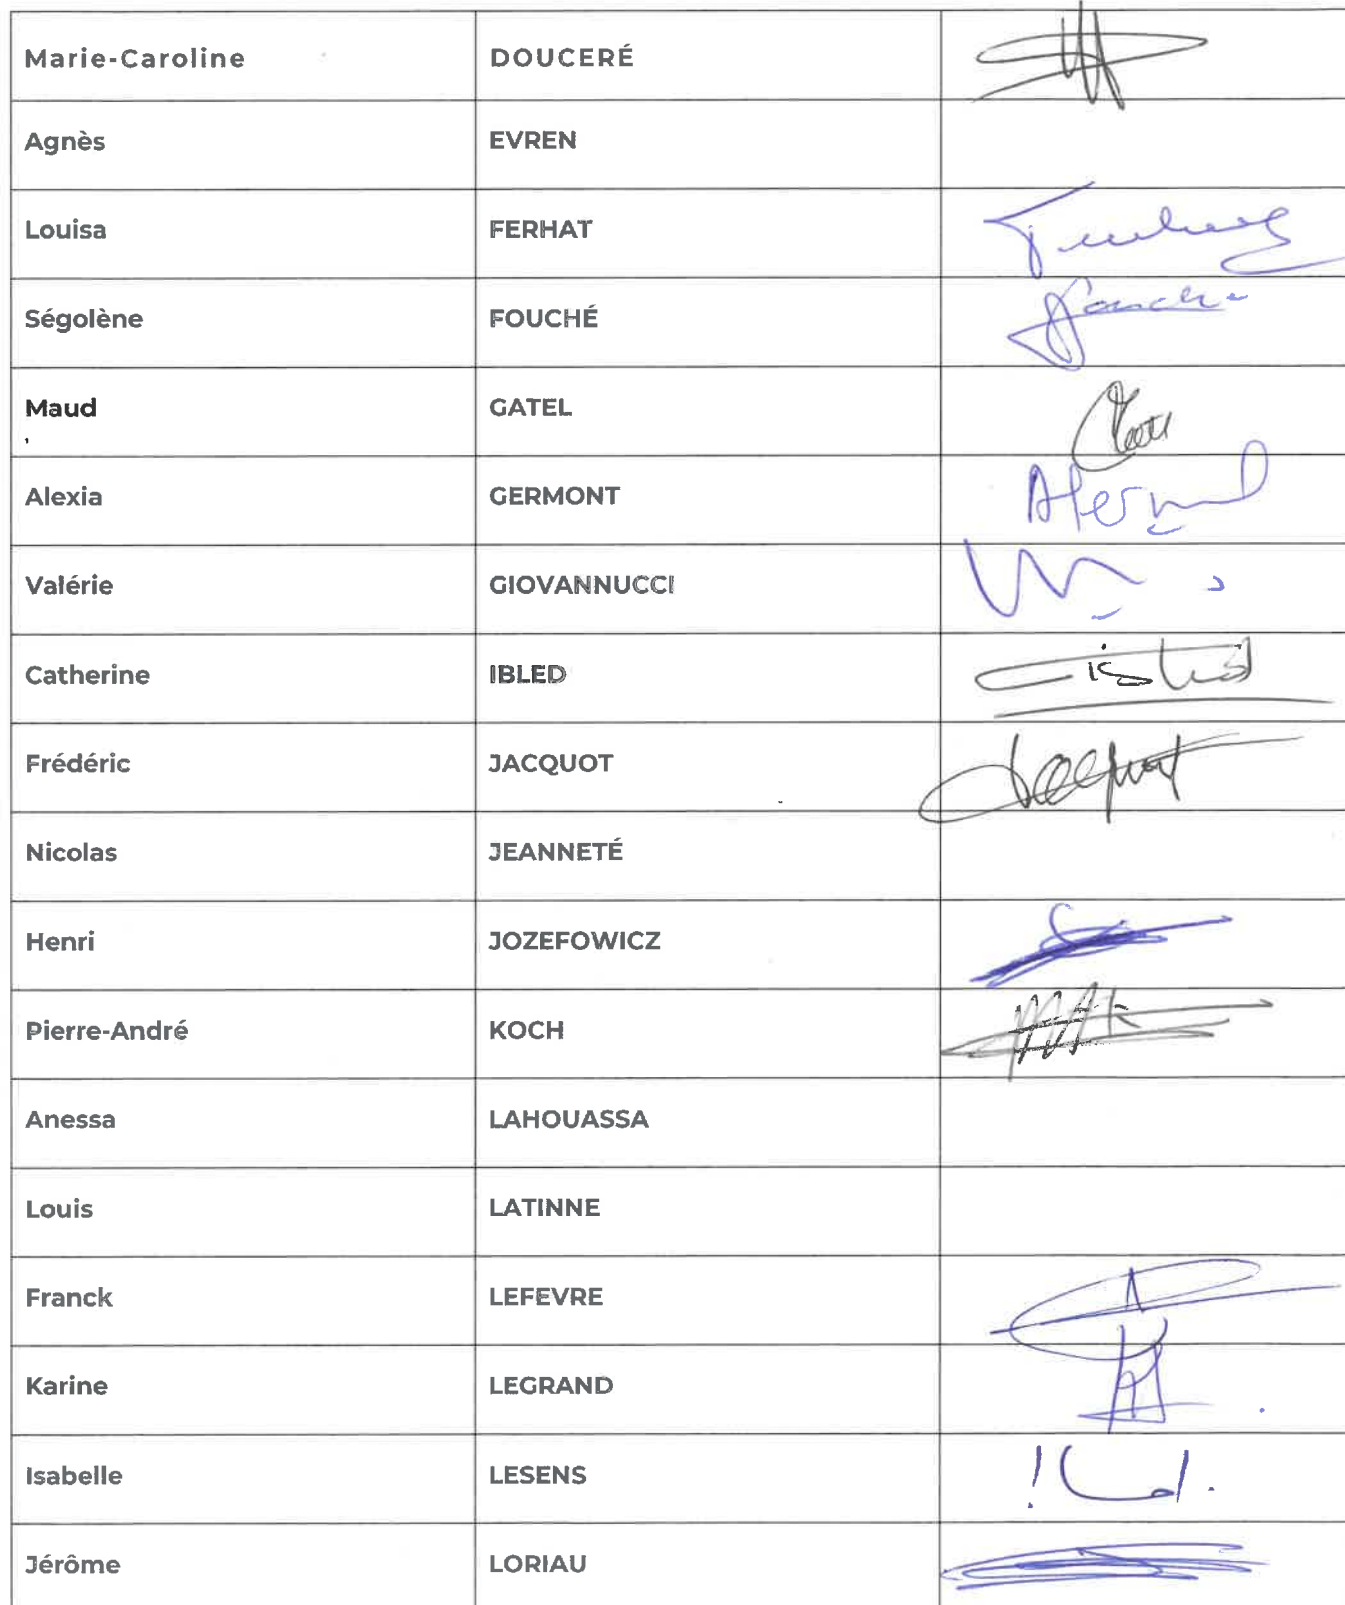 Marie-Caroline DOUCERÉ
Agnès EVREN
Louisa FERHAT
Ségolène FOUCHÉ
Maud GATEL
Alexia GERMONT
Valérie GIOVANNUCCI
Catherine IBLED
Frédéric JACQUOT
Nicolas JEANNETÉ
Henri JOZEFOWICZ
Pierre-André KOCH
Anessa LAHOUASSA
Louis LATINNE
Franck LEFEVRE
Karine LEGRAND
Isabelle LESENS
Jérôme LORIAU